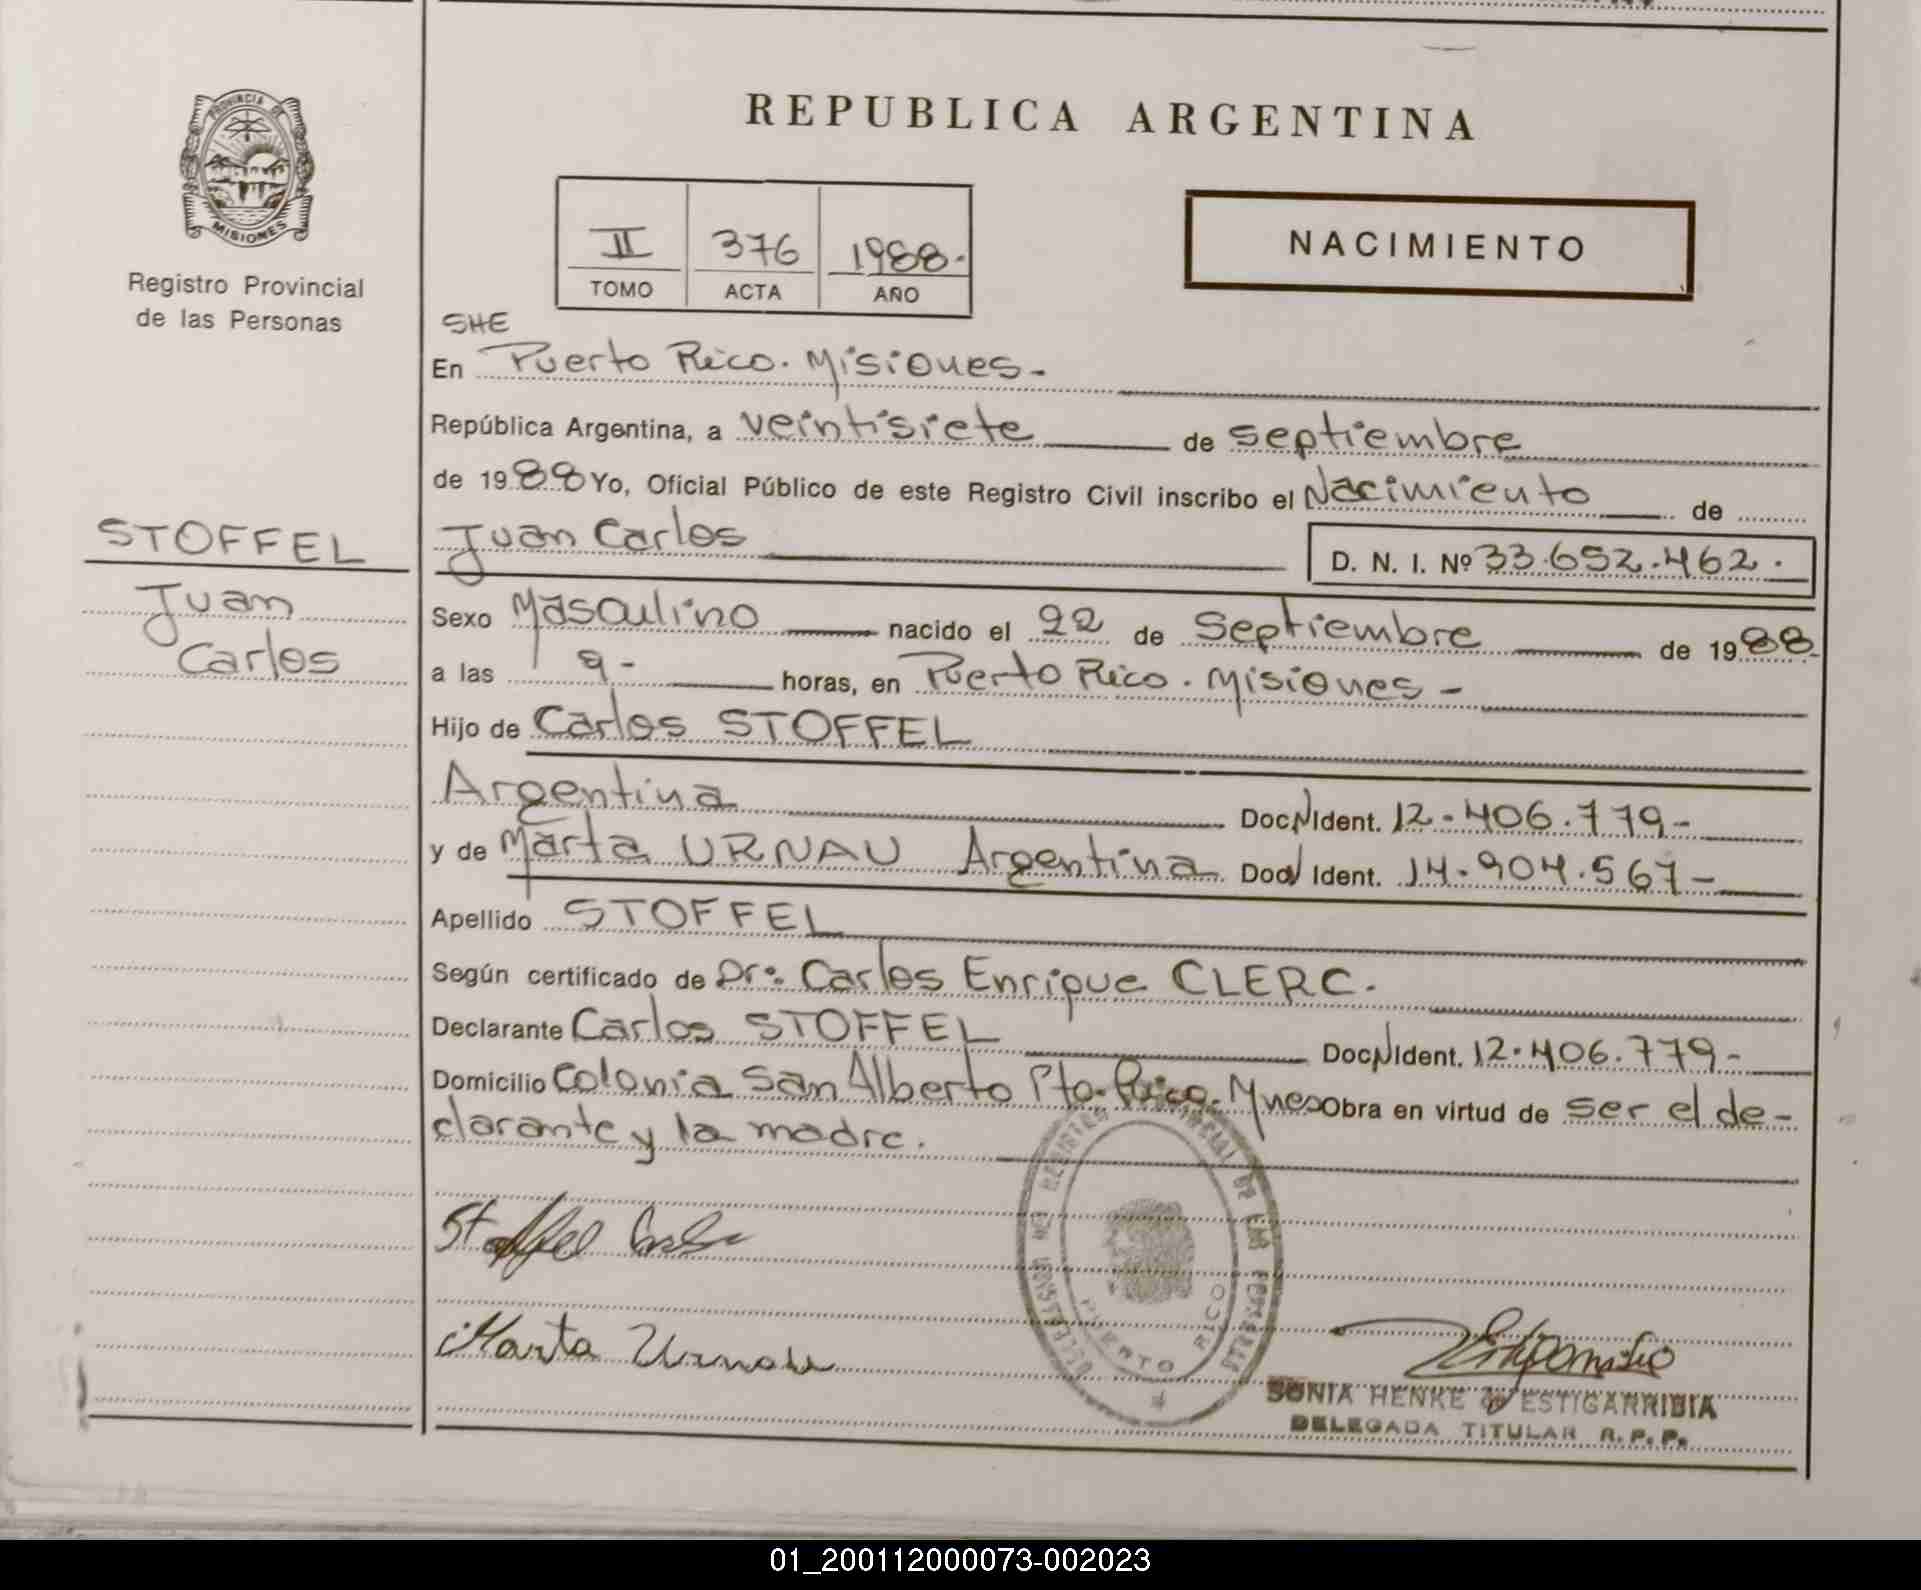 PROVINCIA DE
MISIONES
Registro Provincial
de las Personas
REPUBLICA ARGENTINA
II 376 1988.
TOMO ACTA AÑO
NACIMIENTO
SHE
En Puerto Rico. Misiones-
República Argentina, a veintisiete de septiembre
de 1988 Yo, Oficial Público de este Registro Civil inscribo el Nacimiento de
STOFFEL
Juan
Carlos
Juan Carlos D. N. I. Nº 33.652.462.
Sexo Masculino nacido el 22 de Septiembre de 1988.
a las 9- horas, en Puerto Rico. Misiones-
Hijo de Carlos STOFFEL
Argentina Doc N Ident. 12.406.779-
y de Marta URNAU Argentina Doc N Ident. 14.904.567-
Apellido STOFFEL
Según certificado de Dr: Carlos Enrique CLERC.
Declarante Carlos STOFFEL Doc N Ident. 12.406.779-
Domicilio Colonia San Alberto Pto. Rico. Mnes Obra en virtud de ser el de-
clarante y la madre.
Stoffel Carlos
Marta Urnau
PUERTO RICO
SONIA HENKE de ESTIGARRIBIA
DELEGADA TITULAR R. P. P.
01_200112000073-002023